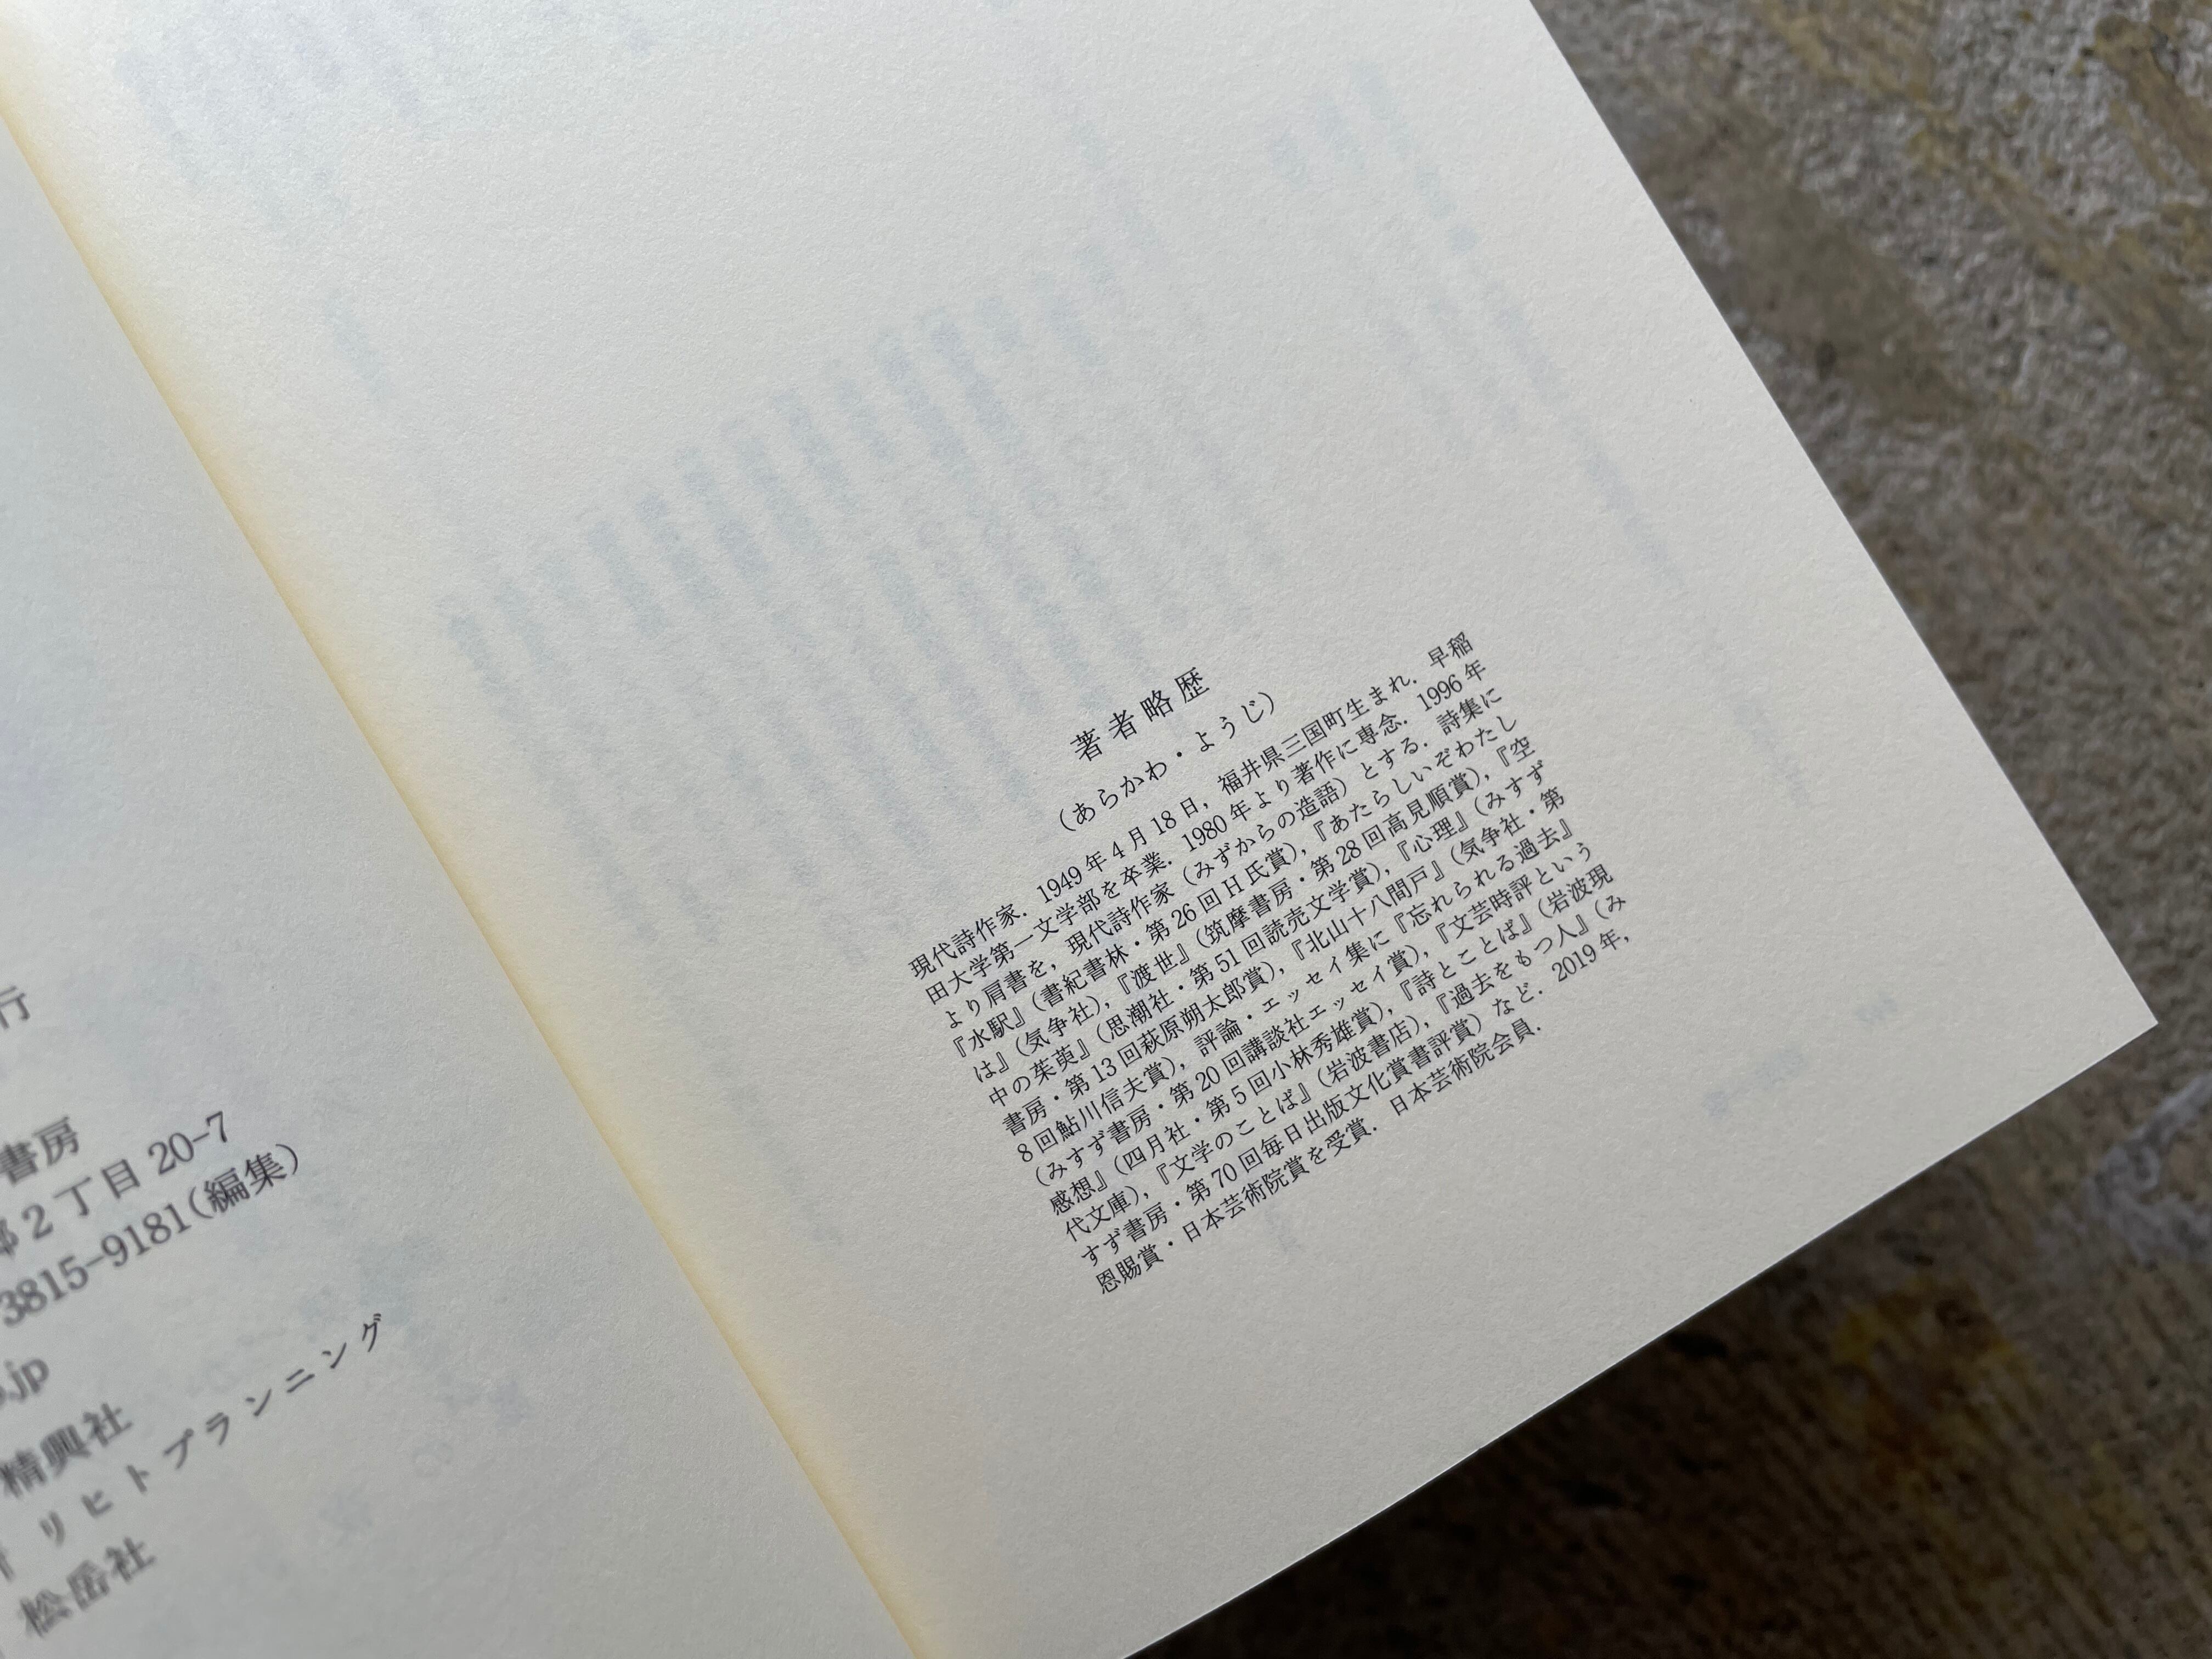 著者略歴
(あらかわ・ようじ)
現代詩作家．1949年4月18日，福井県三国町生まれ．早稲
田大学第一文学部を卒業．1980年より著作に専念．1996年
より肩書を，現代詩作家（みずからの造語）とする．詩集に
『水駅』（書紀書林・第26回H氏賞），『あたらしいぞわたし
は』（気争社），『渡世』（筑摩書房・第28回高見順賞），『空
中の茱萸』（思潮社・第51回読売文学賞），『心理』（みすず
書房・第13回萩原朔太郎賞），『北山十八間戸』（気争社・第
8回鮎川信夫賞），評論・エッセイ集に『忘れられる過去』
（みすず書房・第20回講談社エッセイ賞），『文芸時評という
感想』（四月社・第5回小林秀雄賞），『詩とことば』（岩波現
代文庫），『文学のことば』（岩波書店），『過去をもつ人』（み
すず書房・第70回毎日出版文化賞書評賞）など．2019年，
恩賜賞・日本芸術院賞を受賞．日本芸術院会員．
行
書房
2丁目20-7
3815-9181(編集)
.jp
精興社
リヒトプランニング
松岳社